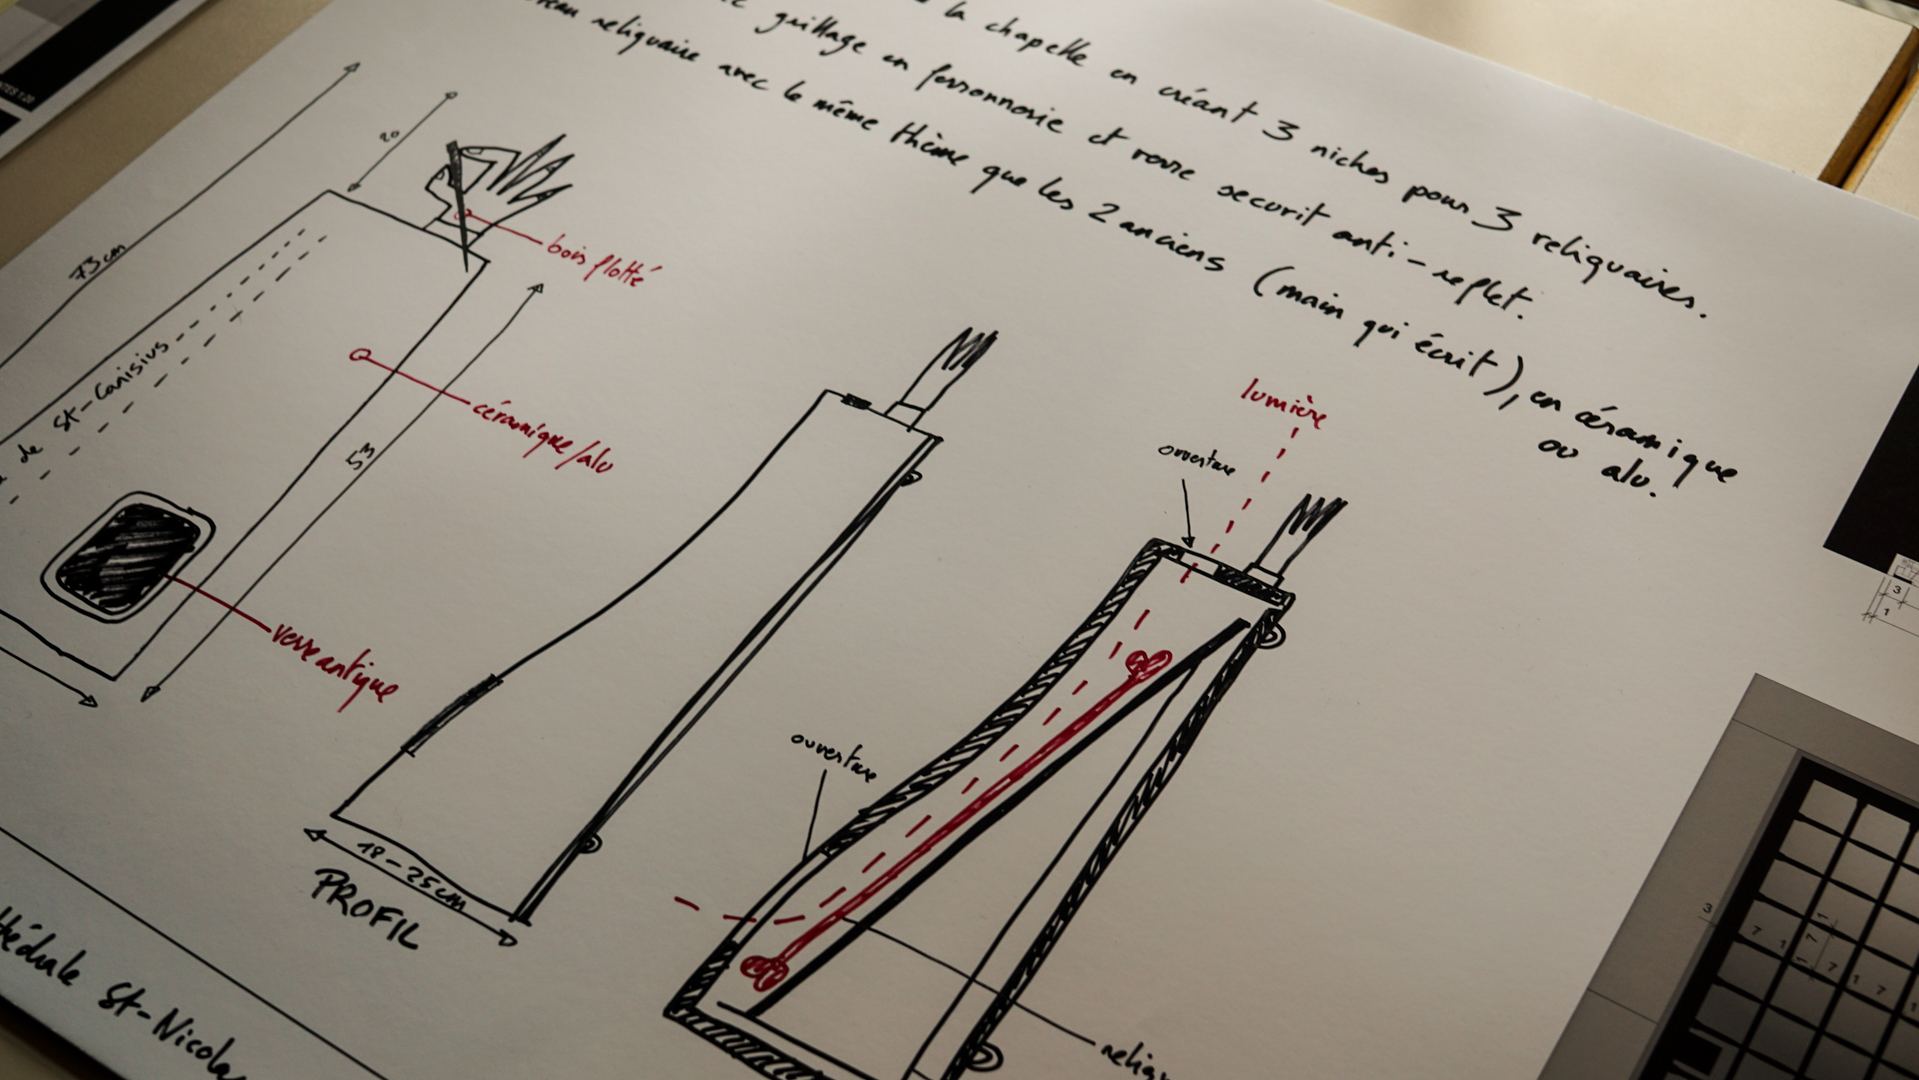 la chapelle en créant 3 niches pour 3 reliquaires.
grillage en ferronnerie et verre securit anti-reflet.
reliquaire avec le même thème que les 2 anciens (main qui écrit), en céramique
ou alu.
20
73 cm
bois flotté
de St-Canisius
céramique/alu
53
verre antique
lumière
ouverture
ouverture
18-25cm
PROFIL
St-Nicolas
3
1
3
7 1
1
7
1
7 1 7 1